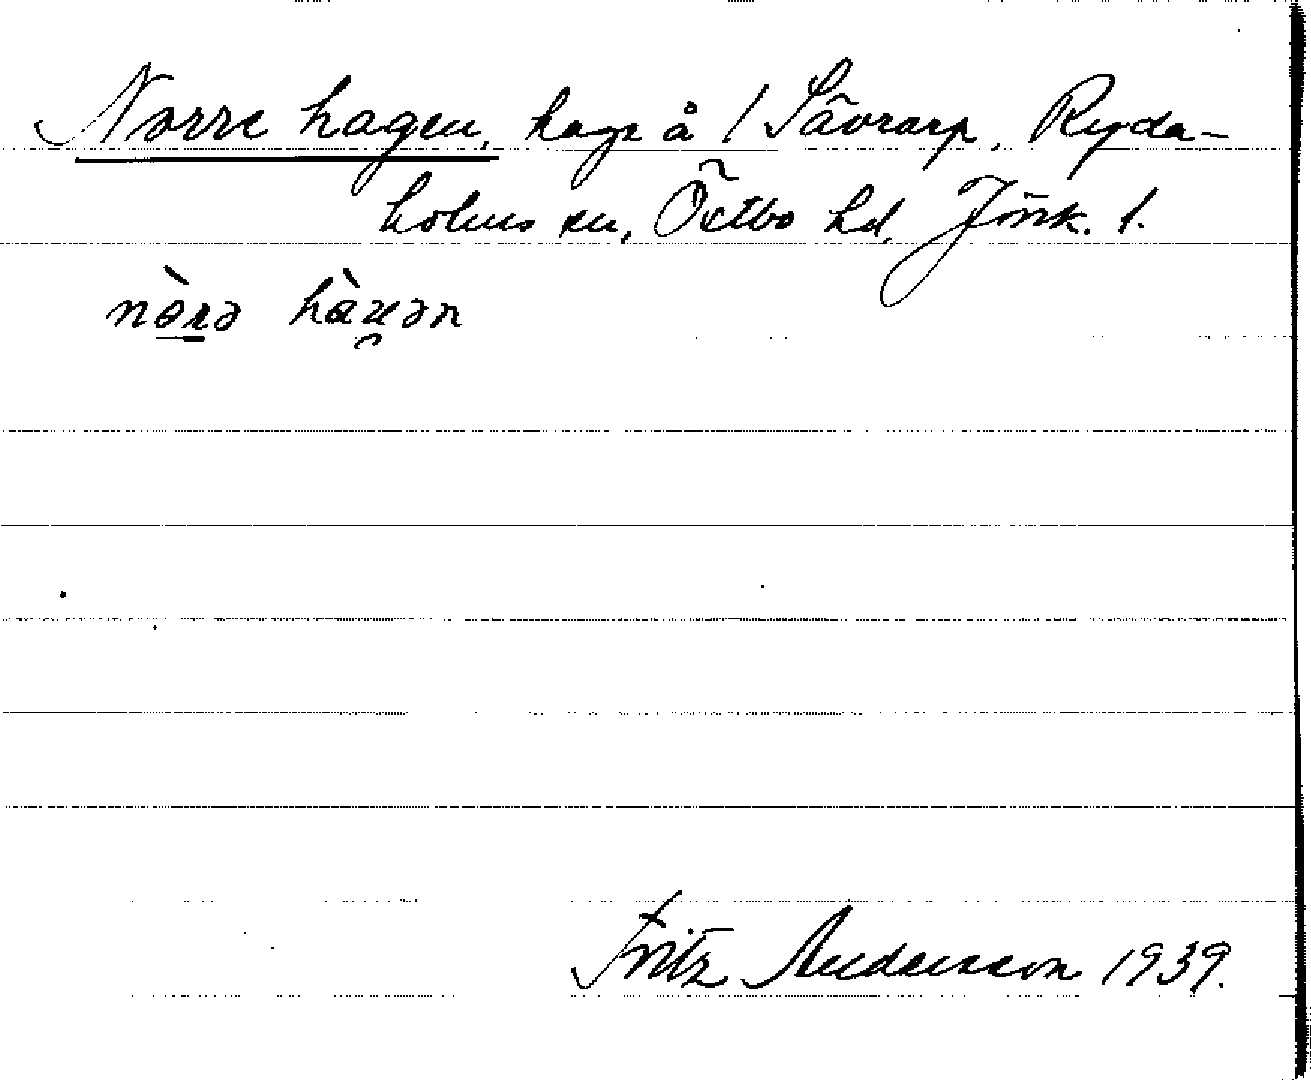 Norre hagen, hage å 1 Sävrarp, Ryda-
holms sn, Östbo hd, Jönk. l.
nòrə hàu̯ən
Fritz Andersson 1939.